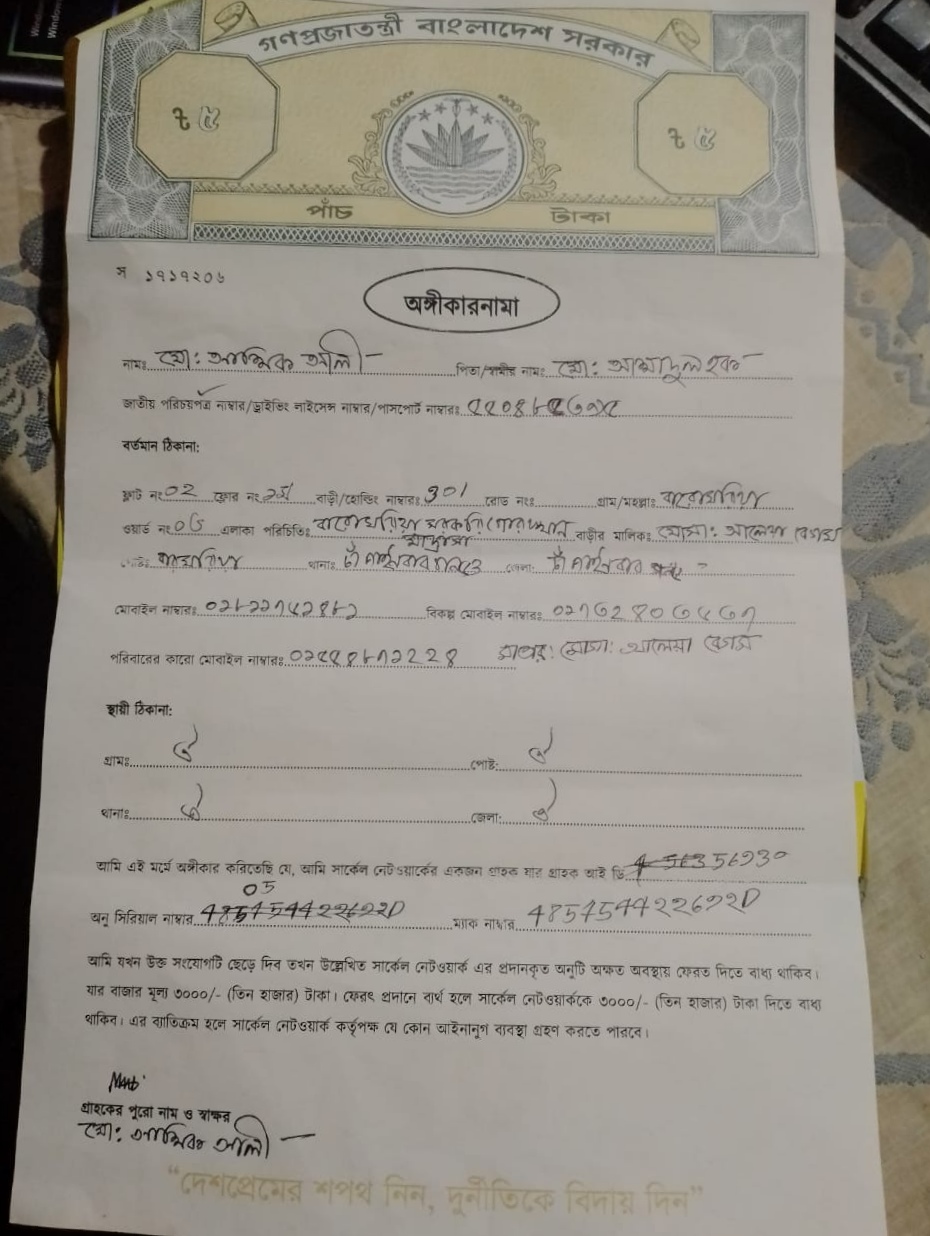 গণপ্রজাতন্ত্রী বাংলাদেশ সরকার
৳ ৫ ৳ ৫
পাঁচ টাকা
স ১৭১৭২০৬
অঙ্গীকারনামা
নামঃ মোঃ আলী পিতা/স্বামীর নামঃ মোঃ আব্দুল হক
জাতীয় পরিচয়পত্র নাম্বার/ড্রাইভিং লাইসেন্স নাম্বার/পাসপোর্ট নাম্বারঃ
বর্তমান ঠিকানা:
ফ্লাট নং ০২ ফ্লোর নং বাড়ী/হোল্ডিং নাম্বারঃ ৩০১ রোড নংঃ গ্রাম/মহল্লাঃ বারোঘরিয়া
ওয়ার্ড নং ০৫ এলাকা পরিচিতিঃ বারোঘরিয়া বাড়ীর মালিকঃ মোসাঃ আলেয়া বেগম
পোষ্টঃ থানাঃ চাঁপাইনবাবগঞ্জ জেলা: চাঁপাইনবাবগঞ্জ
মোবাইল নাম্বারঃ বিকল্প মোবাইল নাম্বারঃ
পরিবারের কারো মোবাইল নাম্বারঃ মোসা: আলেয়া বেগম
স্থায়ী ঠিকানা:
গ্রামঃ ঐ পোষ্ট: ঐ
থানাঃ ঐ জেলা: ঐ
আমি এই মর্মে অঙ্গীকার করিতেছি যে, আমি সার্কেল নেটওয়ার্কের একজন গ্রাহক যার গ্রাহক আই ডি
05
অনু সিরিয়াল নাম্বার ম্যাক নাম্বার 485754422692D
আমি যখন উক্ত সংযোগটি ছেড়ে দিব তখন উল্লেখিত সার্কেল নেটওয়ার্ক এর প্রদানকৃত অনুটি অক্ষত অবস্থায় ফেরত দিতে বাধ্য থাকিব।
যার বাজার মূল্য ৩০০০/- (তিন হাজার) টাকা। ফেরৎ প্রদানে ব্যর্থ হলে সার্কেল নেটওয়ার্ককে ৩০০০/- (তিন হাজার) টাকা দিতে বাধ্য
থাকিব। এর ব্যতিক্রম হলে সার্কেল নেটওয়ার্ক কর্তৃপক্ষ যে কোন আইনানুগ ব্যবস্থা গ্রহণ করতে পারবে।
গ্রাহকের পুরো নাম ও স্বাক্ষর
মোঃ আলী
“দেশপ্রেমের শপথ নিন, দুর্নীতিকে বিদায় দিন”